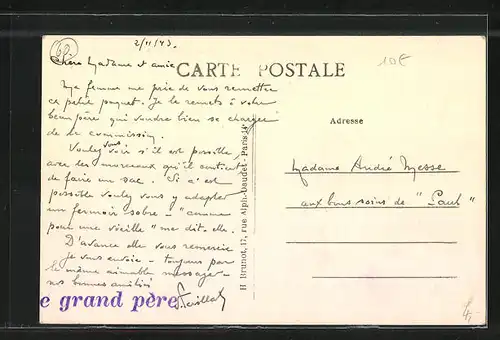 2/11/43.
Chère Madame et amie
CARTE POSTALE
10€
Ma femme me prie de vous remettre
ce petit paquet. Je le remets à votre
beau père qui voudra bien se charger
de la commission.
Voulez vous voir s'il est possible,
avec des morceaux qu'il contient
de faire un sac. Si c'est
possible voulez vous y adapter
un fermoir sobre - "comme
pour une vieille" me dit-elle.
D'avance elle vous remercie
je vous envoie - toujours par
le même aimable messager -
nos bonnes amitiés
e grand père
H Brunot, 17, rue Alph.-Daudet - Paris-14e
Adresse
Madame André Messe
aux bons soins de "Paul"
4,-